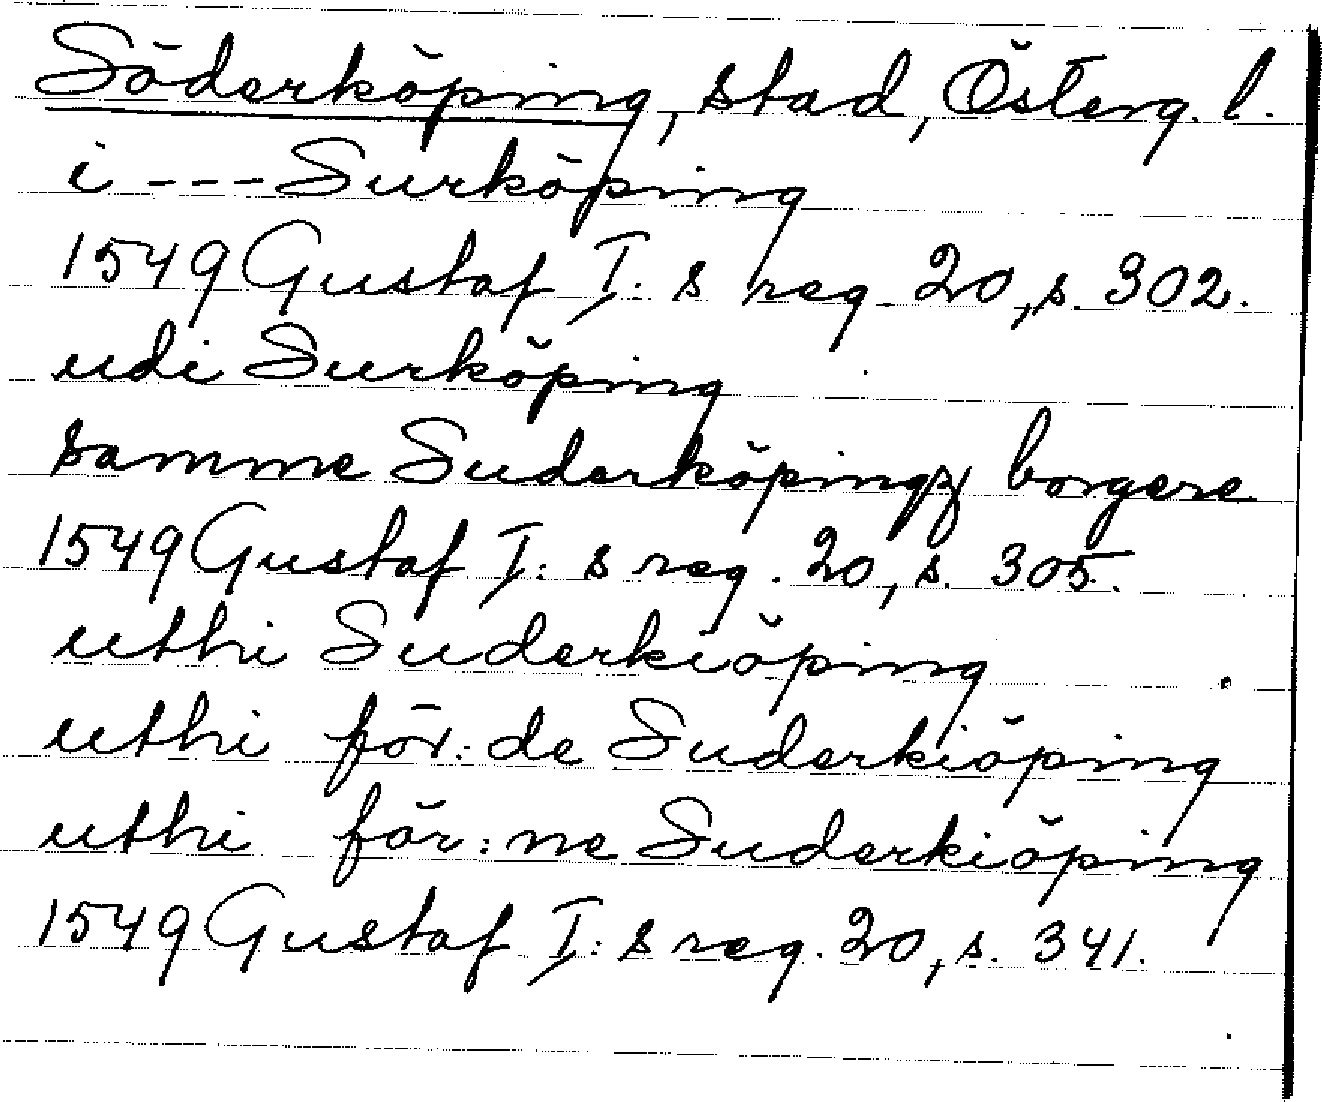 Söderköping, stad, Österg. l.
i --- Surköping
1549 Gustaf I: s reg. 20, s. 302.
udi Surköping
samme Suderköpingz borgere
1549 Gustaf I: s reg. 20, s. 305.
uthi Suderkiöping
uthi för: de Suderkiöping
uthi för: ne Suderkiöping
1549 Gustaf I: s reg. 20, s. 341.